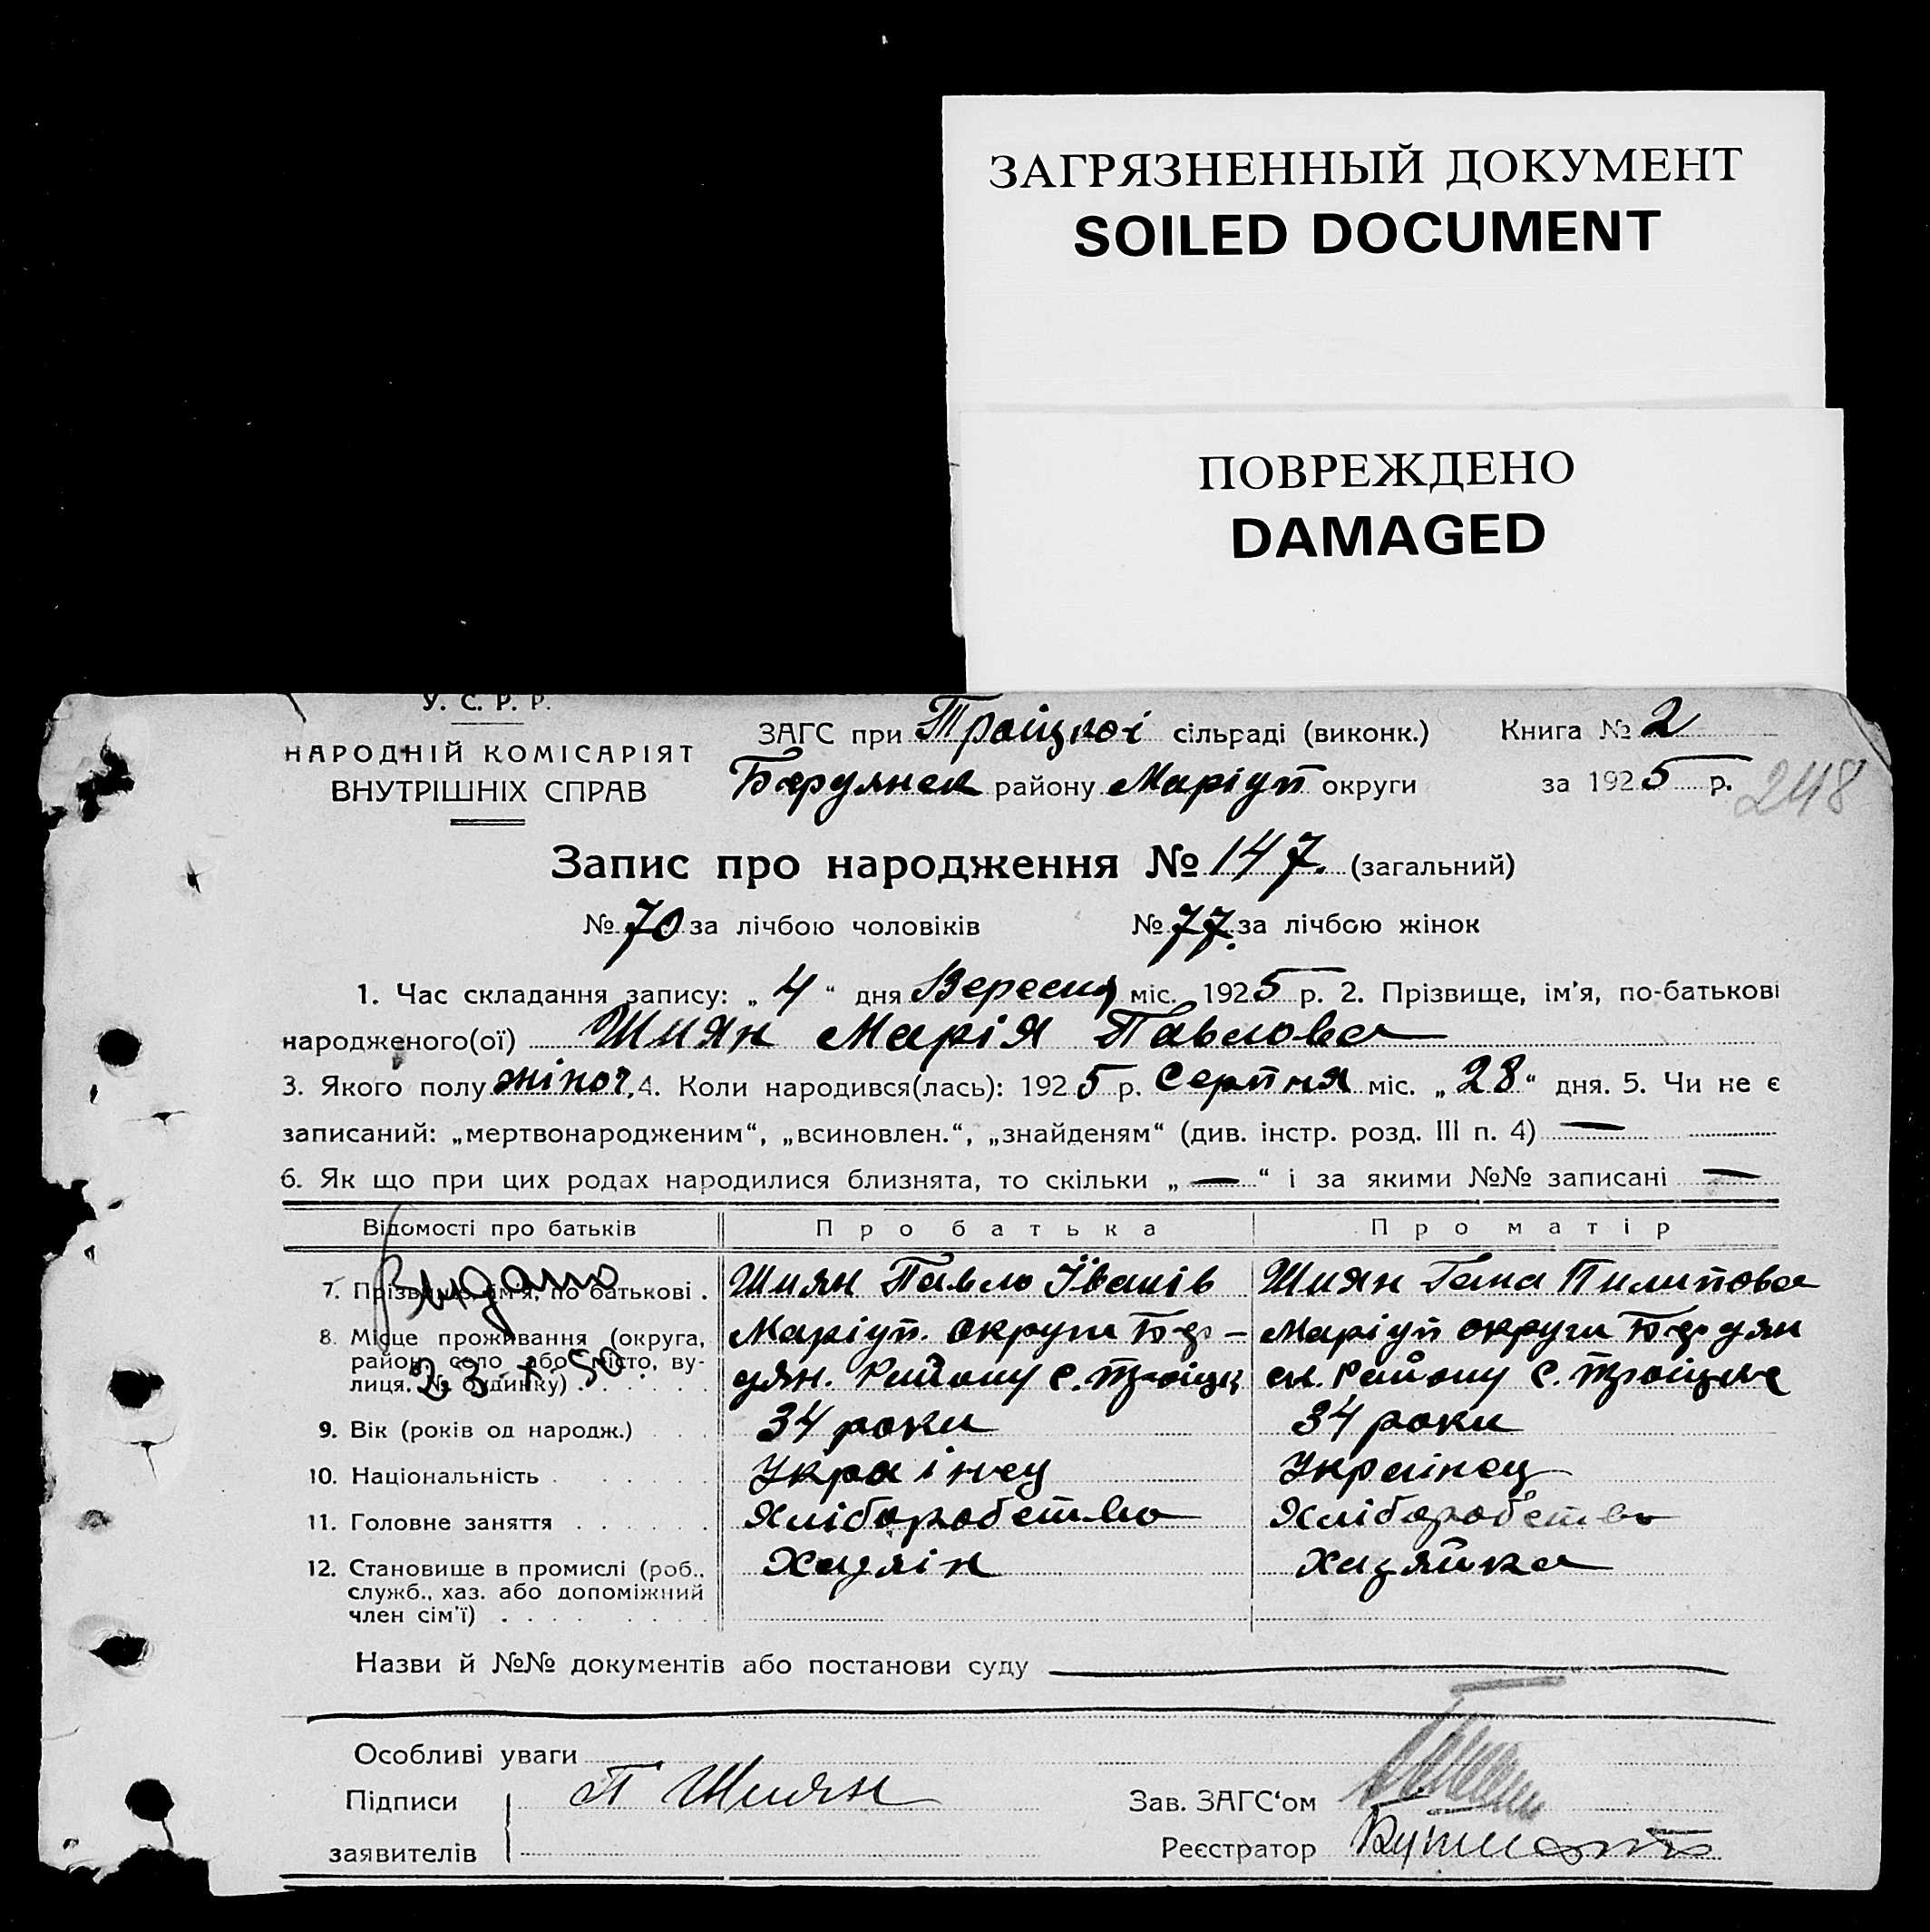 ЗАГРЯЗНЕННЫЙ ДОКУМЕНТ
SOILED DOCUMENT
ПОВРЕЖДЕНО
DAMAGED
У. С. Р. Р.
НАРОДНІЙ КОМІСАРІЯТ
ВНУТРІШНІХ СПРАВ
ЗАГС при Троїцкої сільраді (виконк.) Книга № 2
Бердянск району Маріуп округи за 1925 р.
248
Запис про народження № 147. (загальний)
№ 70 за лічбою чоловіків № 77. за лічбою жінок
1. Час складання запису: „ 4 “ дня Вересня міс. 1925 р. 2. Прізвище, ім'я, по-батькові
народженого(ої) Шиян Марія Павлова
3. Якого полу жіноч. 4. Коли народився(лась): 1925 р. Серпня міс. „ 28 “ дня. 5. Чи не є
записаний: „мертвонародженим“, „всиновлен.“, „знайденям“ (див. інстр. розд. III п. 4) —
6. Як що при цих родах народилися близнята, то скільки „ — “ і за якими №№ записані —
Відомості про батьків Про батька Про матір
Видано
23 X 50
7. Прізвище, ім'я, по батькові . Шиян Павло Іванів Шиян Гана Пилипова
8. Місце проживання (округа, Маріуп. округи Бер- Маріуп округи Бердян
район, село або місто, ву- дян. Району с. Троіцк ск. Району с. Троіцке
лиця, № будинку) . . . . . .
9. Вік (років од народж.) . . . 34 роки 34 роки
10. Національність . . . . . Українец Українец
11. Головне заняття . . . . . . Хліборобство Хліборобство
12. Становище в промислі (роб., Хазяін Хазяйка
служб., хаз. або допоміжний
член сім'ї) . . . . . . .
Назви й №№ документів або постанови суду
Особливі уваги
Підписи П Шиян Зав. ЗАГС'ом
заявителів Реєстратор